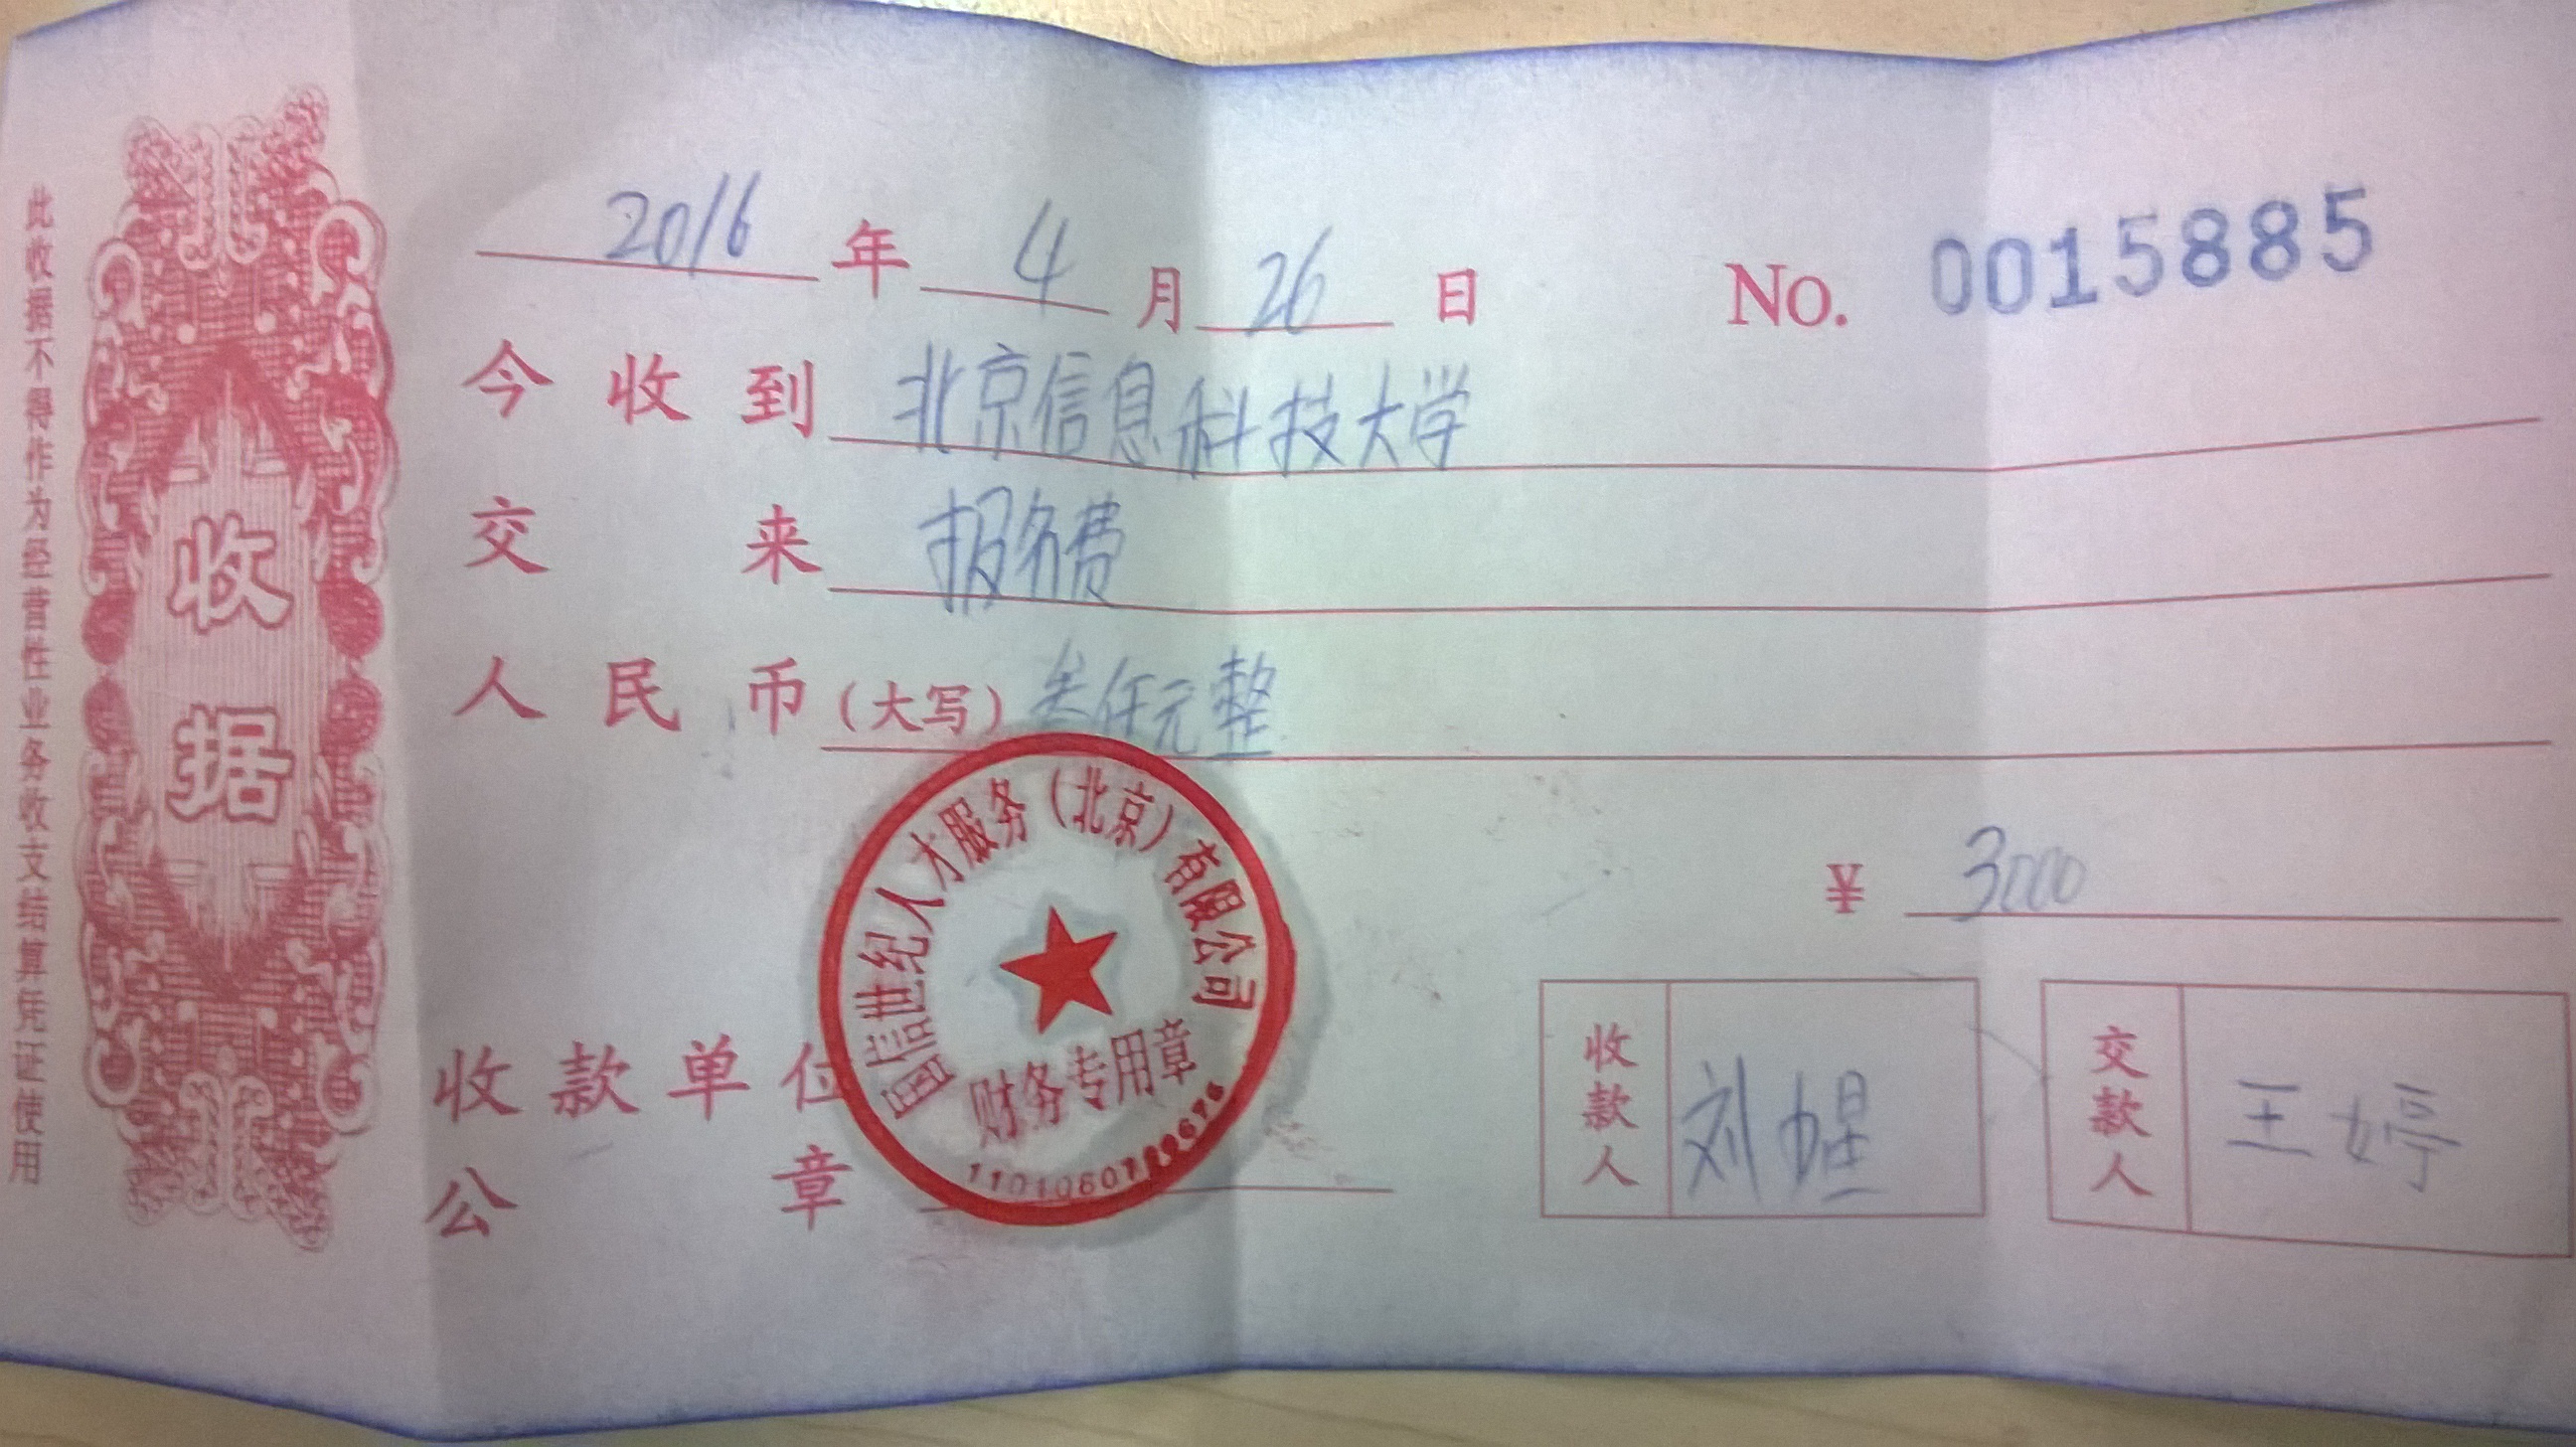 此收据不得作为经营性业务收支结算凭证使用
收据
2016年4月26日 No. 0015885
今收到 北京信息科技大学
交来 报名费
人民币(大写) 叁仟元整
¥ 3000
收款单位
公章
国信世纪人才服务(北京)有限公司
财务专用章
收款人 刘
交款人 王婷